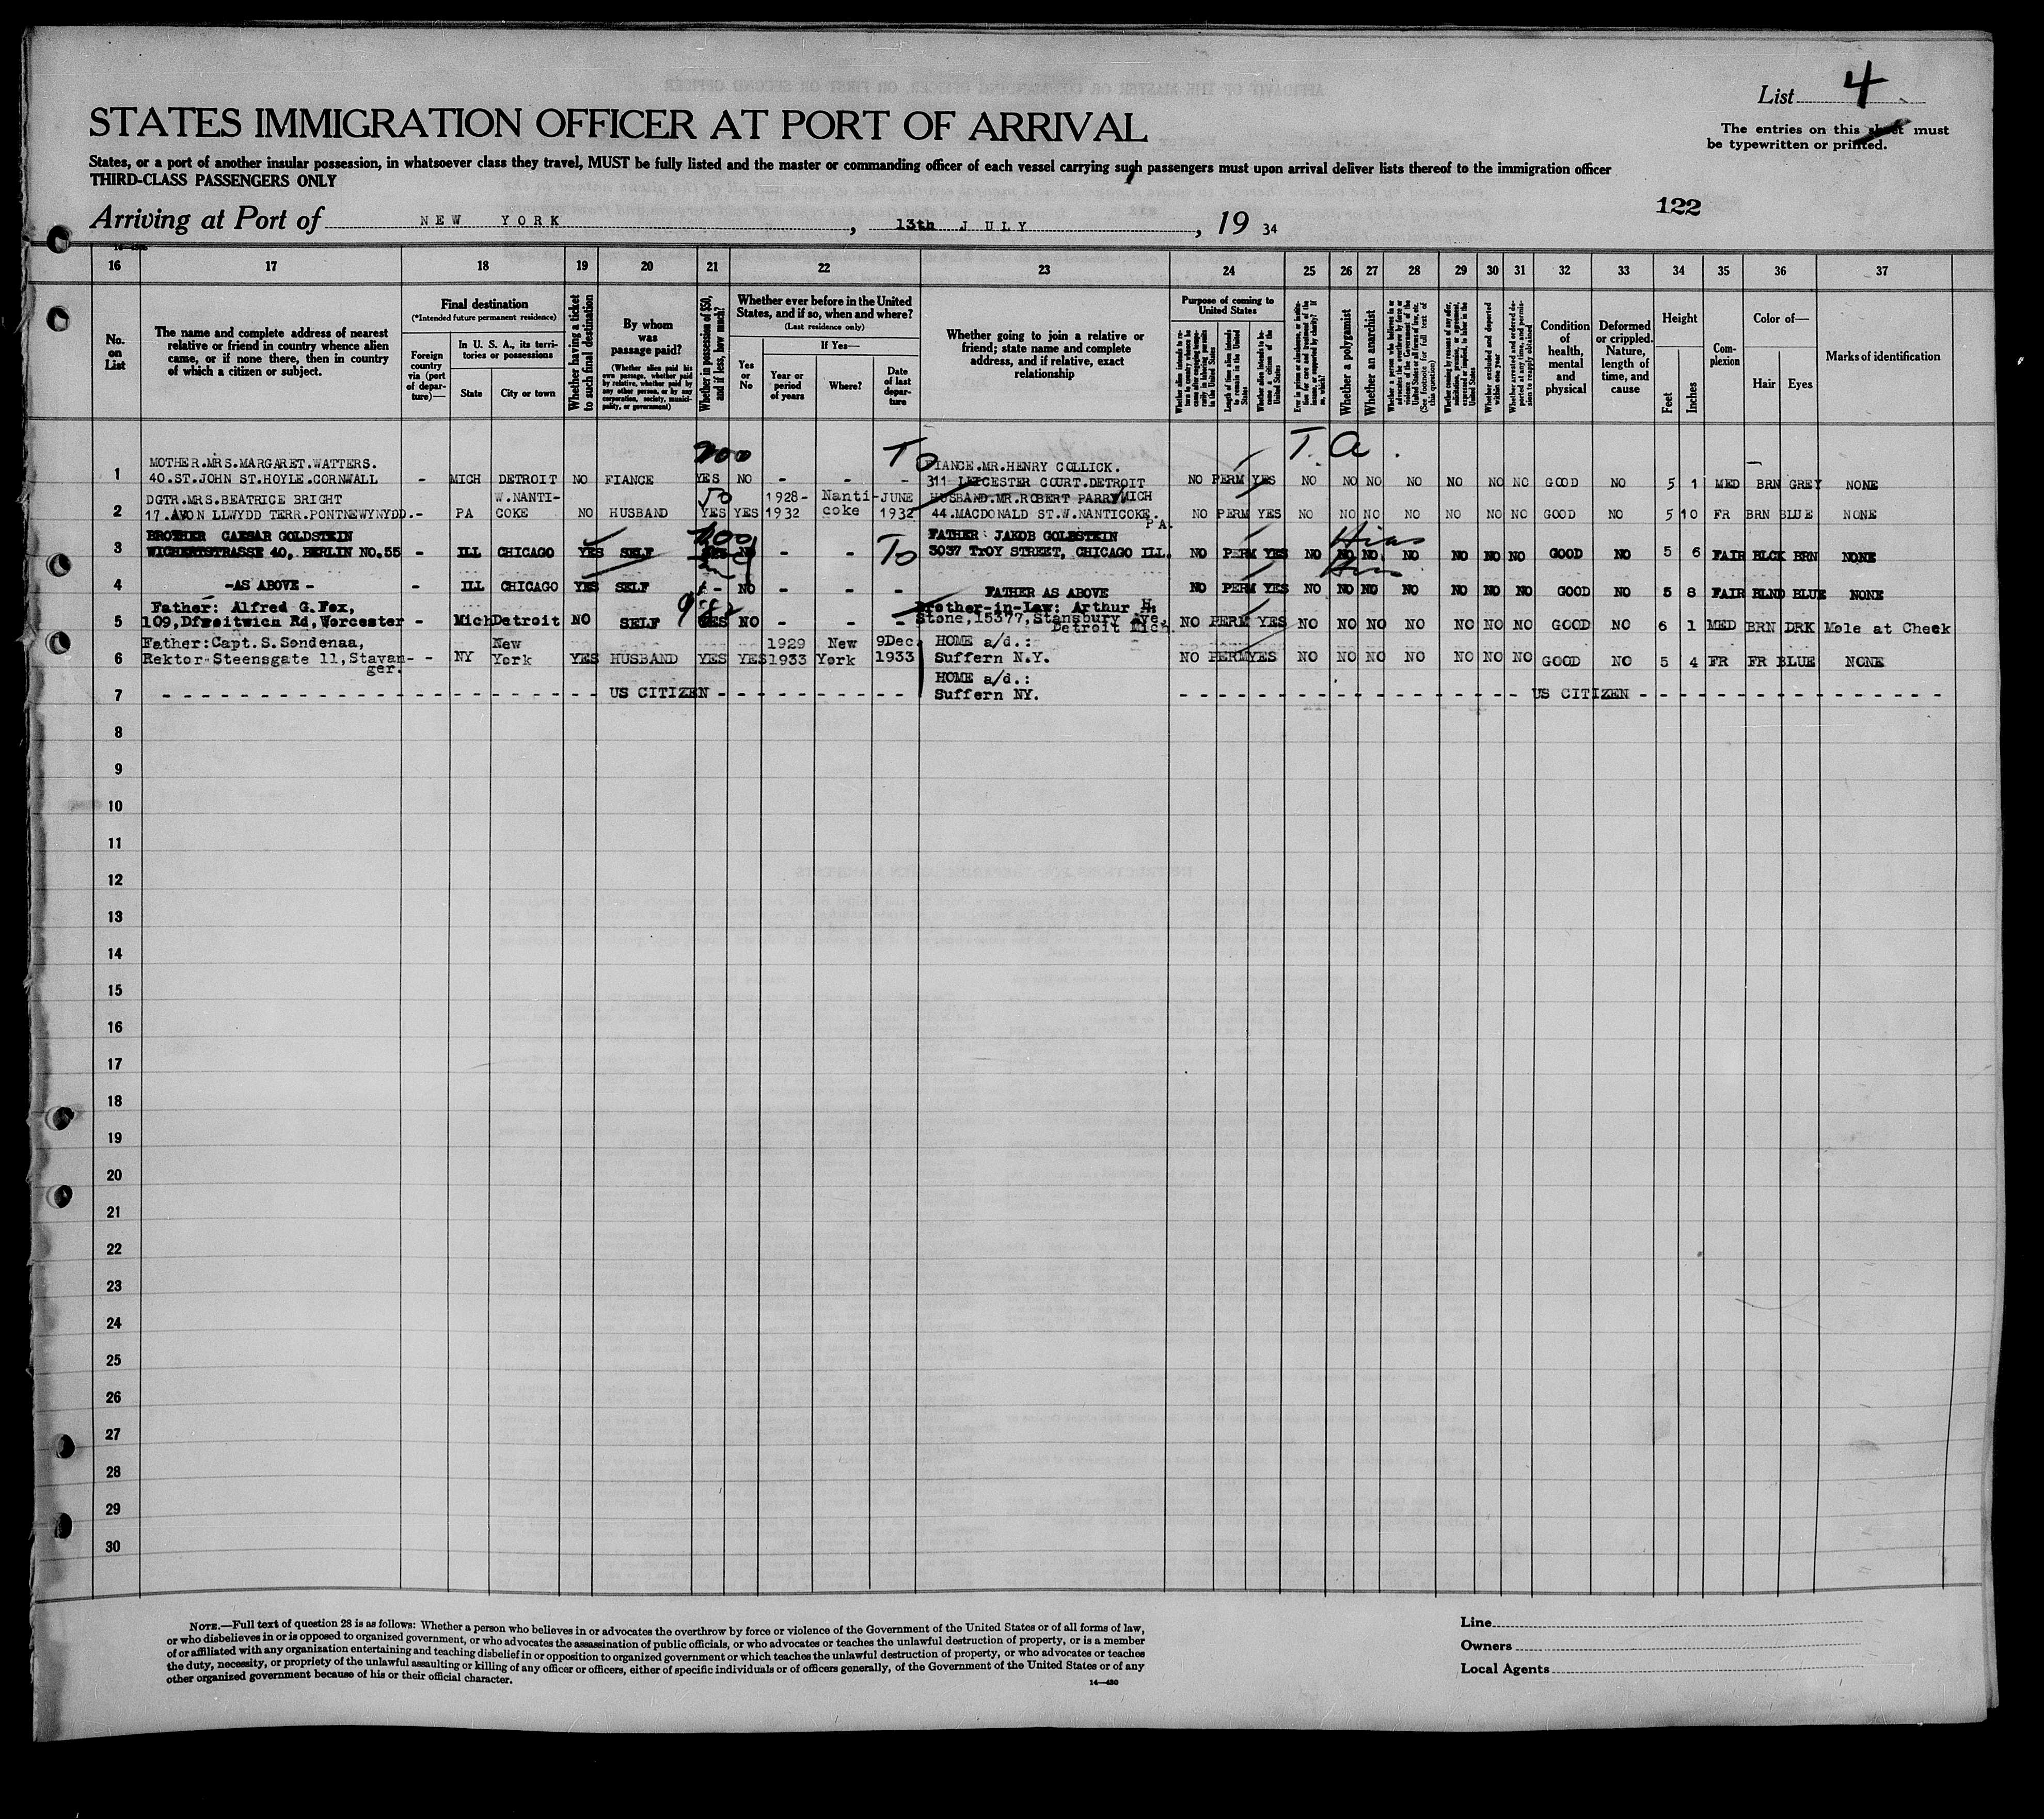 List 4
The entries on this sheet must
be typewritten or printed.
STATES IMMIGRATION OFFICER AT PORT OF ARRIVAL
States, or a port of another insular possession, in whatsoever class they travel, MUST be fully listed and the master or commanding officer of each vessel carrying such passengers must upon arrival deliver lists thereof to the immigration officer
THIRD-CLASS PASSENGERS ONLY
122
Arriving at Port of NEW YORK, 13th JULY, 19 34
16 17 18 19 20 21 22 23 24 25 26 27 28 29 30 31 32 33 34 35 36 37
No. on List
The name and complete address of nearest relative or friend in country whence alien came, or if none there, then in country of which a citizen or subject.
Final destination
(*Intended future permanent residence)
Foreign country via (port of departure)—
In U. S. A., its territories or possessions
State
City or town
Whether having a ticket to such final destination
By whom was passage paid?
(Whether alien paid his own passage, whether paid by relative, whether paid by any other person, or by any corporation, society, municipality, or government)
Whether in possession of $50, and if less, how much?
Whether ever before in the United States, and if so, when and where?
(Last residence only)
Yes or No
If Yes—
Year or period of years
Where?
Date of last departure
Whether going to join a relative or friend; state name and complete address, and if relative, exact relationship
Purpose of coming to United States
Length of time alien intends to remain in the United States
Whether alien intends to become a citizen of the United States
Whether a polygamist
Whether an anarchist
(See footnote for full text of this question)
Condition of health, mental and physical
Deformed or crippled. Nature, length of time, and cause
Height
Feet
Inches
Complexion
Color of—
Hair
Eyes
Marks of identification
200 To T. A.
MOTHER.MRS.MARGARET.WATTERS. FIANCE.MR.HENRY COLLICK.
1 40.ST.JOHN ST.HOYLE.CORNWALL - MICH DETROIT NO FIANCE YES NO - - - 311 LEICESTER COURT.DETROIT MICH NO PERM YES NO NO NO NO NO NO NO GOOD NO 5 1 MED BRN GREY NONE
DGTR.MRS.BEATRICE BRIGHT W.NANTI- 50 1928- Nanti- JUNE HUSBAND.MR.ROBERT PARRY
2 17.AVON LLWYDD TERR.PONTNEWYNYDD. - PA COKE NO HUSBAND YES YES 1932 coke 1932 44.MACDONALD ST.W.NANTICOKE. PA. NO PERM YES NO NO NO NO NO NO NO GOOD NO 5 10 FR BRN BLUE NONE
BROTHER CAESAR GOLDSTEIN 200 To FATHER: JAKOB GOLDSTEIN Hias
3 WICHERTSTRASSE 40, BERLIN NO.55 - ILL CHICAGO YES SELF YES NO - - 3037 TROY STREET, CHICAGO ILL. NO PERM YES NO NO NO NO NO NO NO GOOD NO 5 6 FAIR BLCK BRN NONE
4 -AS ABOVE - - ILL CHICAGO YES SELF - NO - - - FATHER AS ABOVE NO PERM YES NO NO NO NO NO NO NO GOOD NO 5 8 FAIR BLND BLUE NONE
Father: Alfred G.Fox, Brother-in-Law: Arthur H.
5 109,Dfroitwich Rd,Worcester - Mich Detroit NO SELF YES NO - - - Stone,15377,Stansbury Ave, Detroit Mich. NO PERM YES NO NO NO NO NO NO NO GOOD NO 6 1 MED BRN DRK Mole at Cheek
Father:Capt.S.Sondenaa, New 1929 New 9Dec. HOME a/d.:
6 Rektor-Steensgate 11,Stavan- ger. - NY York YES HUSBAND YES YES 1933 York 1933 Suffern N.Y. NO PERM YES NO NO NO NO NO NO NO GOOD NO 5 4 FR FR BLUE NONE
HOME a/d.:
7 US CITIZEN Suffern NY. US CITIZEN
8
9
10
11
12
13
14
15
16
17
18
19
20
21
22
23
24
25
26
27
28
29
30
NOTE.—Full text of question 28 is as follows: Whether a person who believes in or advocates the overthrow by force or violence of the Government of the United States or of all forms of law,
or who disbelieves in or is opposed to organized government, or who advocates the assassination of public officials, or who advocates or teaches the unlawful destruction of property, or is a member
of or affiliated with any organization entertaining and teaching disbelief in or opposition to organized government or which teaches the unlawful destruction of property, or who advocates or teaches
the duty, necessity, or propriety of the unlawful assaulting or killing of any officer or officers, either of specific individuals or of officers generally, of the Government of the United States or of any
other organized government because of his or their official character.
14—430
Line
Owners
Local Agents